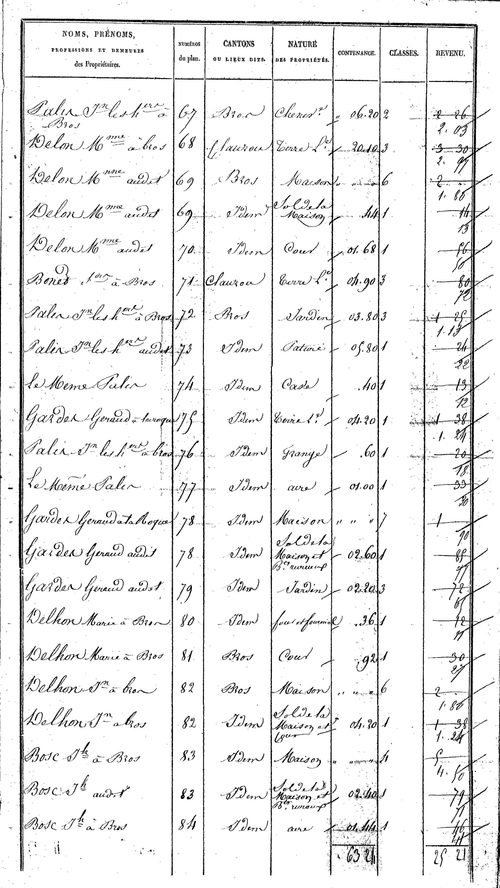 NOMS, PRÉNOMS, PROFESSIONS ET DEMEURES des Propriétaires. NUMÉROS du plan. CANTONS OU LIEUX DITS. NATURE DES PROPRIÉTÉS. CONTENANCE. CLASSES. REVENU.
Palis Jn les hers à Bros 67 Bros 06.20 2 2 26
2. 03
Delon Mme à bros 68 Clauzou Terre L. 20.10 3 3 30
2. 97
Delon Mme audit 69 Bros Maison " " " 6 2
1. 86
Delon Mme audit 69 Idem Sol de la Maison .44 1 14
13
Delon Mme audit 70 Idem Cour 01.68 1 56
50
à Bros 71 Clauzou Terre L. 04.90 3 80
72
Palis Jn les hert à Bros 72 Bros Jardin 03.80 3 1 25
1.13
Palis Jn les hert audit 73 Idem Pature 05.80 1 24
22
Le Meme Palis 74 Idem Case .40 1 13
12
Gardes Geraud à laroque 75 Idem Terre L. 04.20 1 1 38
1. 24
Palis Jn les hert à bros 76 Idem Grange .60 1 20
18
Le Même Palis 77 Idem aire 01.00 1 33
30
Gardes Geraud a la Roque 78 Idem Maison " " " 7 1
90
Gardes Geraud audit 78 Idem Sol de la Maison et 02.60 1 85
77
Gardes Geraud audit 79 Idem Jardin 02.20 3 72
65
Delhon Marie à Bros 80 Idem four et fournial .36 1 12
11
Delhon Marie à Bros 81 Bros Cour .92 1 30
27
Delhon Jn à bros 82 Bros Maison " " " 6 2
1.86
Delhon Jn à bros 82 Idem Sol de la Maison et Cour 04.20 1 1 38
1. 24
Bosc Jh à Bros 83 Idem Maison " " " 4 5
4. 50
Bosc Jh audit 83 Idem Sol de la Maison et 02.40 1 79
71
Bosc Jh à Bros 84 Idem aire 01.44 1 46
41
63 21 25 21